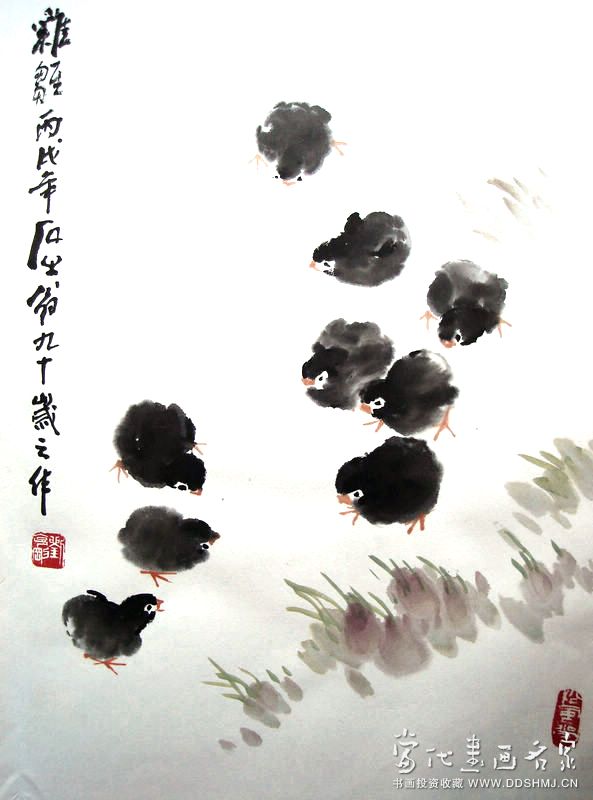 雞雛丙戌年石翁九十歲之作
當代書画名家
书画投资收藏 WWW.DDSHMJ.CN